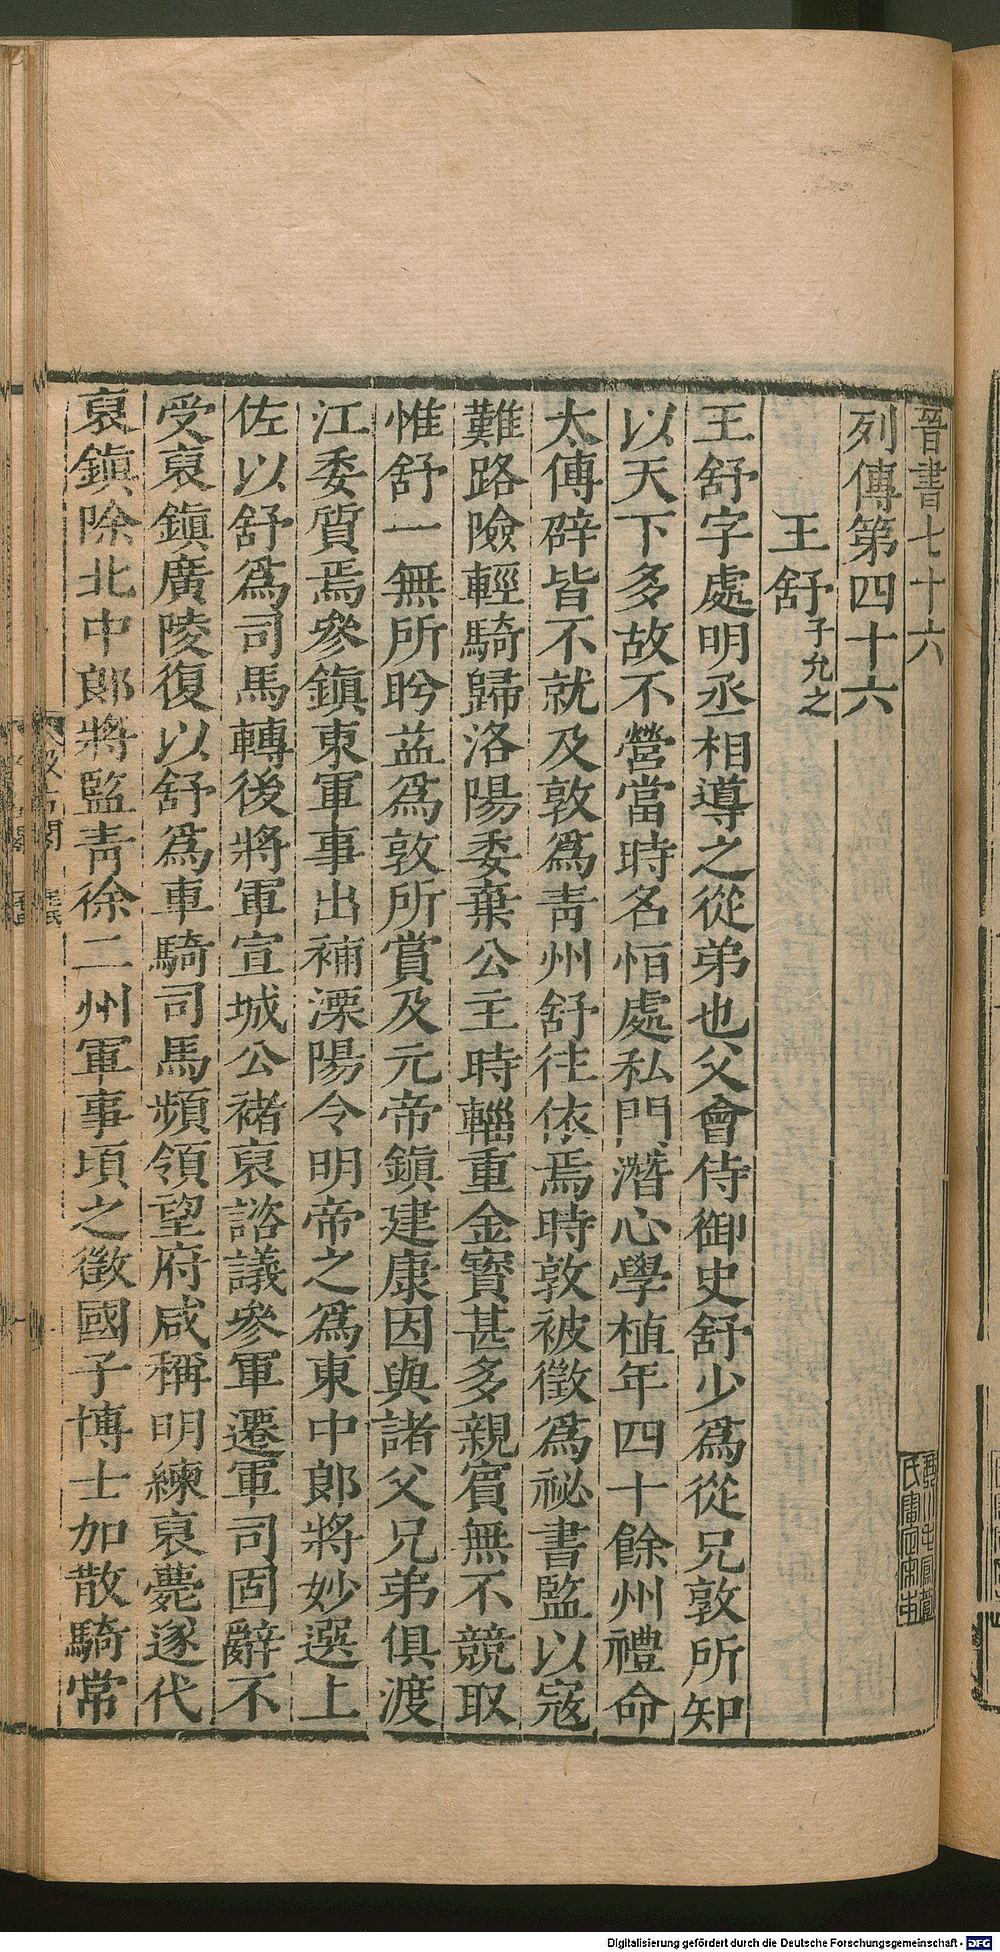 晉書七十六
列傳第四十六
王舒 子允之
王舒字處明丞相導之從弟也父會侍御史舒少爲從兄敦所知
以天下多故不營當時名恒處私門潛心學植年四十餘州禮命
太傅辟皆不就及敦爲靑州舒往依焉時敦被徵爲祕書監以寇
難路險輕騎歸洛陽委棄公主時輜重金寶甚多親賓無不競取
惟舒一無所眄益爲敦所賞及元帝鎭建康因與諸父兄弟俱渡
江委質焉參鎭東軍事出補溧陽令明帝之爲東中郞將妙選上
佐以舒爲司馬轉後將軍宣城公褚裒諮議參軍遷軍司固辭不
受裒鎭廣陵復以舒爲車騎司馬頻領望府咸稱明練裒薨遂代
裒鎭除北中郞將監靑徐二州軍事頃之徵國子博士加散騎常
Digitalisierung gefördert durch die Deutsche Forschungsgemeinschaft - DFG